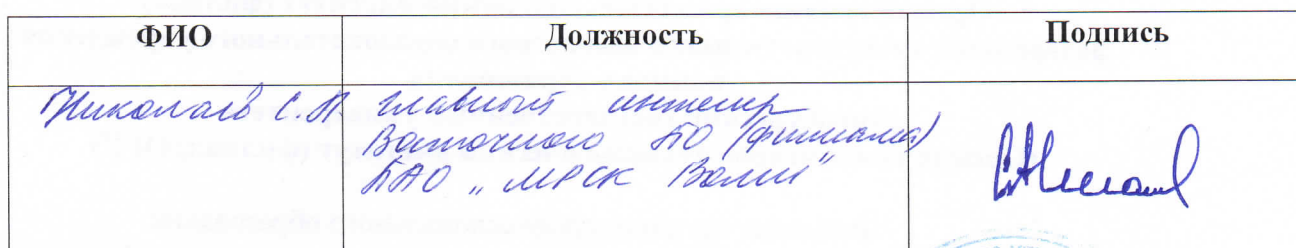 ФИО Должность Подпись
Николаев С.П. главный инженер
Восточного ПО (филиала)
ПАО „МРСК Волги"